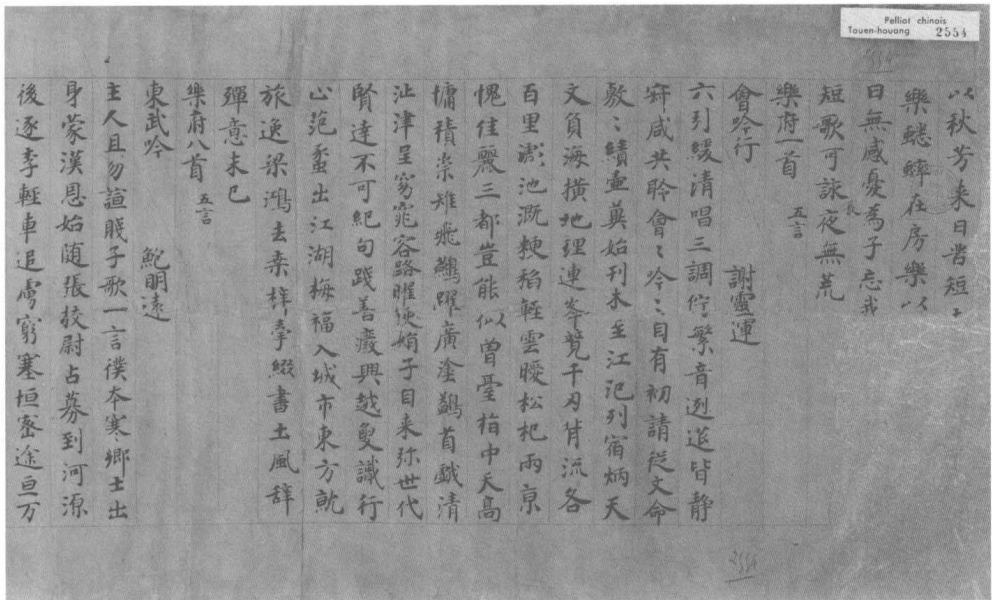 Pelliot chinois
Touen-houang 2554
以秋芳来日苦短
樂蟋蟀在房樂以
日無感憂為子忘我
短歌可詠長夜無荒
樂府一首 五言
會吟行 謝靈運
六引緩清唱三調佇繁音迾筵皆静
寂咸共聆會〻吟〻自有初請從文命
敷〻績壺冀始刊木至江汜列宿炳天
文負海横地理連峯競千刃背流各
百里滮池溉粳稻輕雲曖松杞兩京
愧佳麗三都豈能似曾臺指中天高
墉積崇雉飛鷰躍廣塗鷁首戯清
沚津呈窈窕容路曜便娟子自来弥世代
賢達不可紀句踐善癈興越叟識行
止范蠡出江湖梅福入城市東方就
旅逸梁鴻去桒梓牽綴書土風辞
殫意未已
樂府八首 五言
東武吟 鮑明遠
主人且勿諠賤子歌一言僕本寒鄉士出
身蒙漢恩始随張挍尉占募到河源
後逐李輕車追虜窮塞垣密途亘万
2554